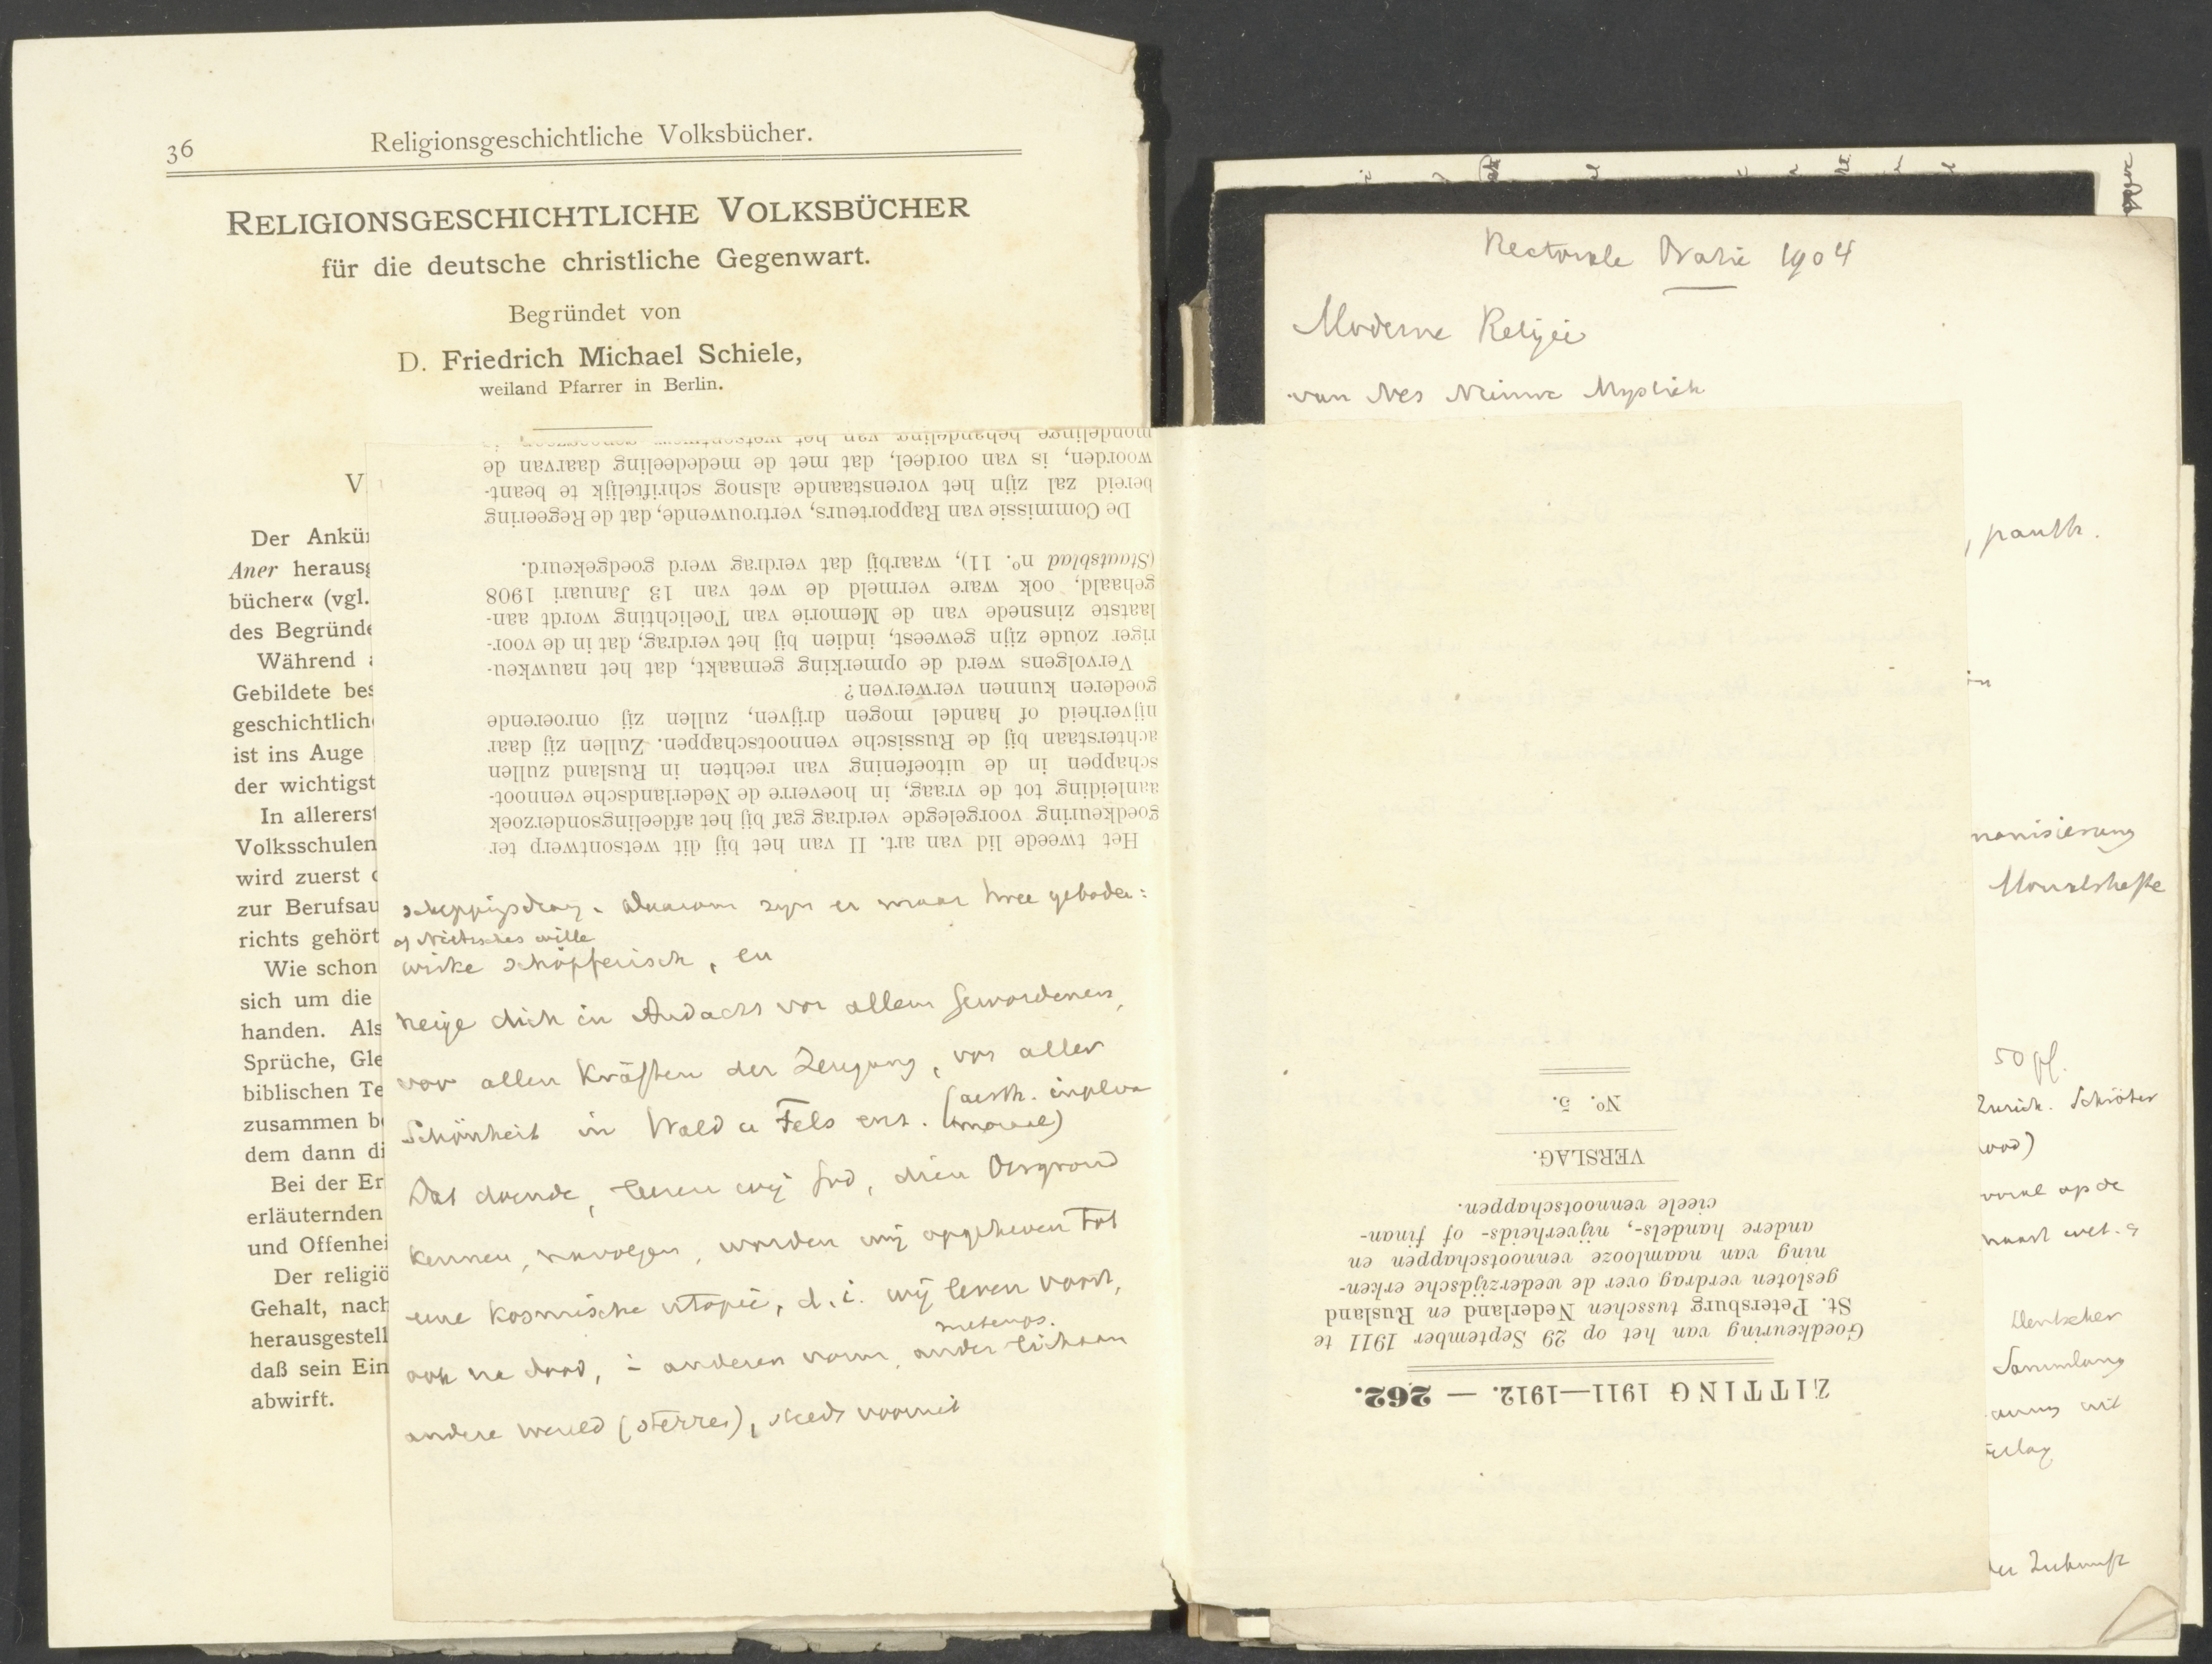 36
Religionsgeschichtliche Volksbücher.
RELIGIONSGESCHICHTLICHE VOLKSBÜCHER
für die deutsche christliche Gegenwart.
Begründet von
D. Friedrich Michael Schiele,
weiland Pfarrer in Berlin.
V
Der Ankü
Aner herausg
bücher« (vgl.
des Begründe
Während
Gebildete bes
geschichtlich
ist ins Auge
der wichtigst
In allererst
Volksschulen
wird zuerst
zur Berufsau
richts gehört
Wie schon
sich um die
handen. Als
Sprüche, Gle
biblischen Te
zusammen b
dem dann di
Bei der Er
erläuternden
und Offenhei
Der religiö
Gehalt, nach
herausgestell
daß sein Ein
abwirft.
Het tweede lid van art. II van het bij dit wetsontwerp ter
goedkeuring voorgelegde verdrag gaf bij het afdeelingsonderzoek
aanleiding tot de vraag, in hoeverre de Nederlandsche vennoot-
schappen in de uitoefening van rechten in Rusland zullen
achterstaan bij de Russische vennootschappen. Zullen zij daar
nijverheid of handel mogen drijven, zullen zij onroerende
goederen kunnen verwerven?
Vervolgens werd de opmerking gemaakt, dat het nauwkeu-
riger zoude zijn geweest, indien bij het verdrag, dat in de voor-
laatste zinsnede van de Memorie van Toelichting wordt aan-
gehaald, ook ware vermeld de wet van 13 Januari 1908
(Staatsblad n°. 11), waarbij dat verdrag werd goedgekeurd.
De Commissie van Rapporteurs, vertrouwende, dat de Regeering
bereid zal zijn het vorenstaande alsnog schriftelijk te beant-
woorden, is van oordeel, dat met de mededeeling daarvan de
mondelinge behandeling van het wetsontwerp
scheppingsdrang. Daarom zijn er maar twee geboden:
of Nietzsches wille
wirke schöpferisch, en
neige dich in Andacht vor allem Gewordenen,
vor allen Kräften der Zeugung, vor aller
Schönheit in Wald u Fels enz. (aesth. inplva
moraal)
Dat doende, leeren wij God, dien Oergrond
kennen, navolgen, worden wij opgeheven tot
eene kosmische utopie, d.i. wij leven voort,
metemps.
ook na dood, in anderen vorm, ander lichaam
andere wereld (sterren), steeds vooruit
Rectorale Oratie 1904
Moderne Religie
van Nes Nieuwe Mystiek
, panth.
monisierung
Monatshefte
50 pf.
Zürich. Schröter
vooral op de
Deutscher
Sammlung
der Zukunft
ZITTING 1911—1912. — 262.
Goedkeuring van het op 29 September 1911 te
St. Petersburg tusschen Nederland en Rusland
gesloten verdrag over de wederzijdsche erken-
ning van naamlooze vennootschappen en
andere handels-, nijverheids- of finan-
cieele vennootschappen.
VERSLAG.
N°. 5.